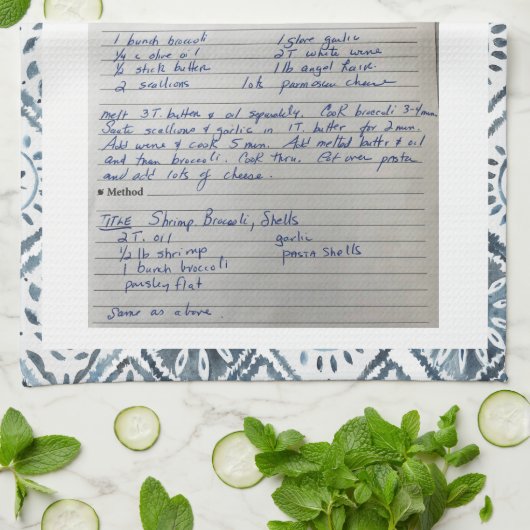 1 bunch broccoli 1 clove garlic
1/4 c olive oil 2T white wine
1/2 stick butter 1 lb angel hair
2 scallions lots parmesan cheese
melt 3T. butter & oil separately. Cook broccoli 3-4 min.
Saute scallions & garlic in 1T. butter for 2 min.
Add wine & cook 5 min. Add melted butter & oil
and then broccoli. Cook thru. Put over pasta
and add lots of cheese.
Method
TITLE Shrimp, Broccoli, Shells
2T. oil garlic
1/2 lb shrimp PASTA Shells
1 bunch broccoli
parsley flat
Same as above.